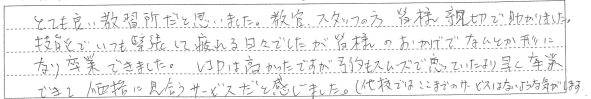 とても良い教習所だと思いました。教官、スタッフの方 皆様 親切で助かりました。
技能でいつも緊張して疲れる日々でしたが皆様のおかげでなんとか形に
なり卒業できました。 は高かったですが予約もスムーズで思っていたより早く卒業
できて価格に見合うサービスだと感じました。(他校ではここまでのサービスはないような気がします